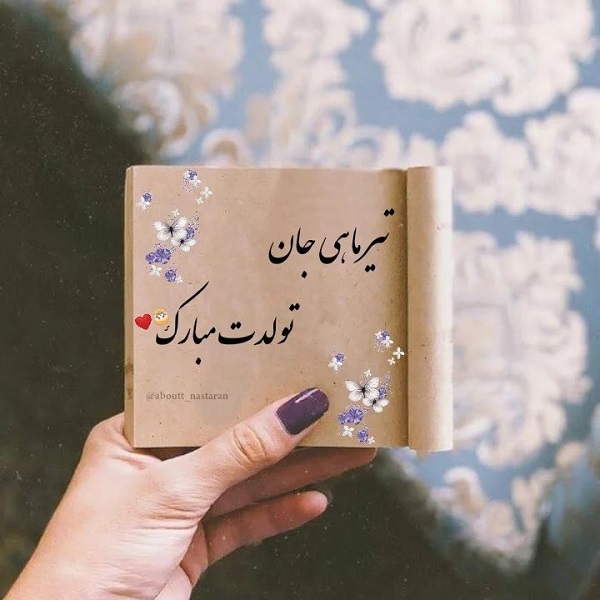 تیرماهی جان
تولدت مبارک
@aboutt_nastaran